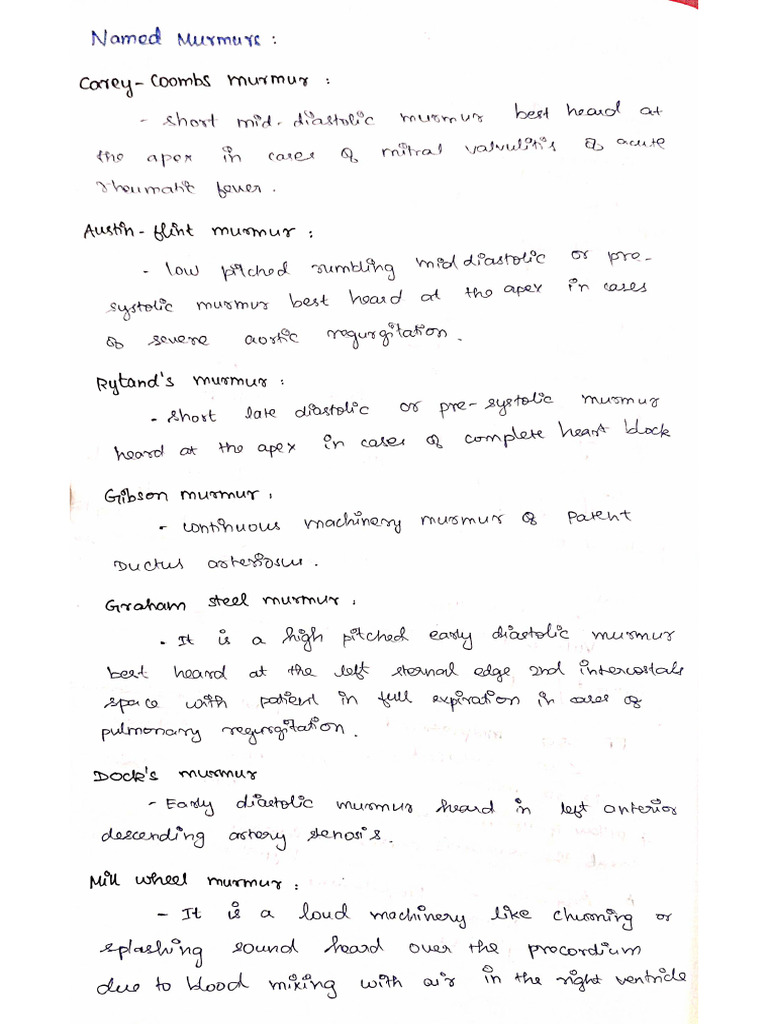 Named Murmurs :
Carey-Coombs murmur :
- Short mid-diastolic murmur best heard at
the apex in cases of mitral valvulitis of acute
rheumatic fever.
Austin-flint murmur :
- low pitched rumbling mid diastolic or pre-
systolic murmur best heard at the apex in cases
of severe aortic regurgitation.
Rytand's murmur :
- Short late diastolic or pre-systolic murmur
heard at the apex in cases of complete heart block
Gibson murmur :
- continuous machinery murmur of Patent
Ductus arteriosus.
Graham steel murmur :
- It is a high pitched early diastolic murmur
best heard at the left sternal edge 2nd intercostals
space with patient in full expiration in cases of
pulmonary regurgitation.
Dock's murmur
- Early diastolic murmur heard in left anterior
descending artery stenosis.
Mill wheel murmur :
- It is a loud machinery like churning or
splashing sound heard over the precordium
due to blood mixing with air in the right ventricle